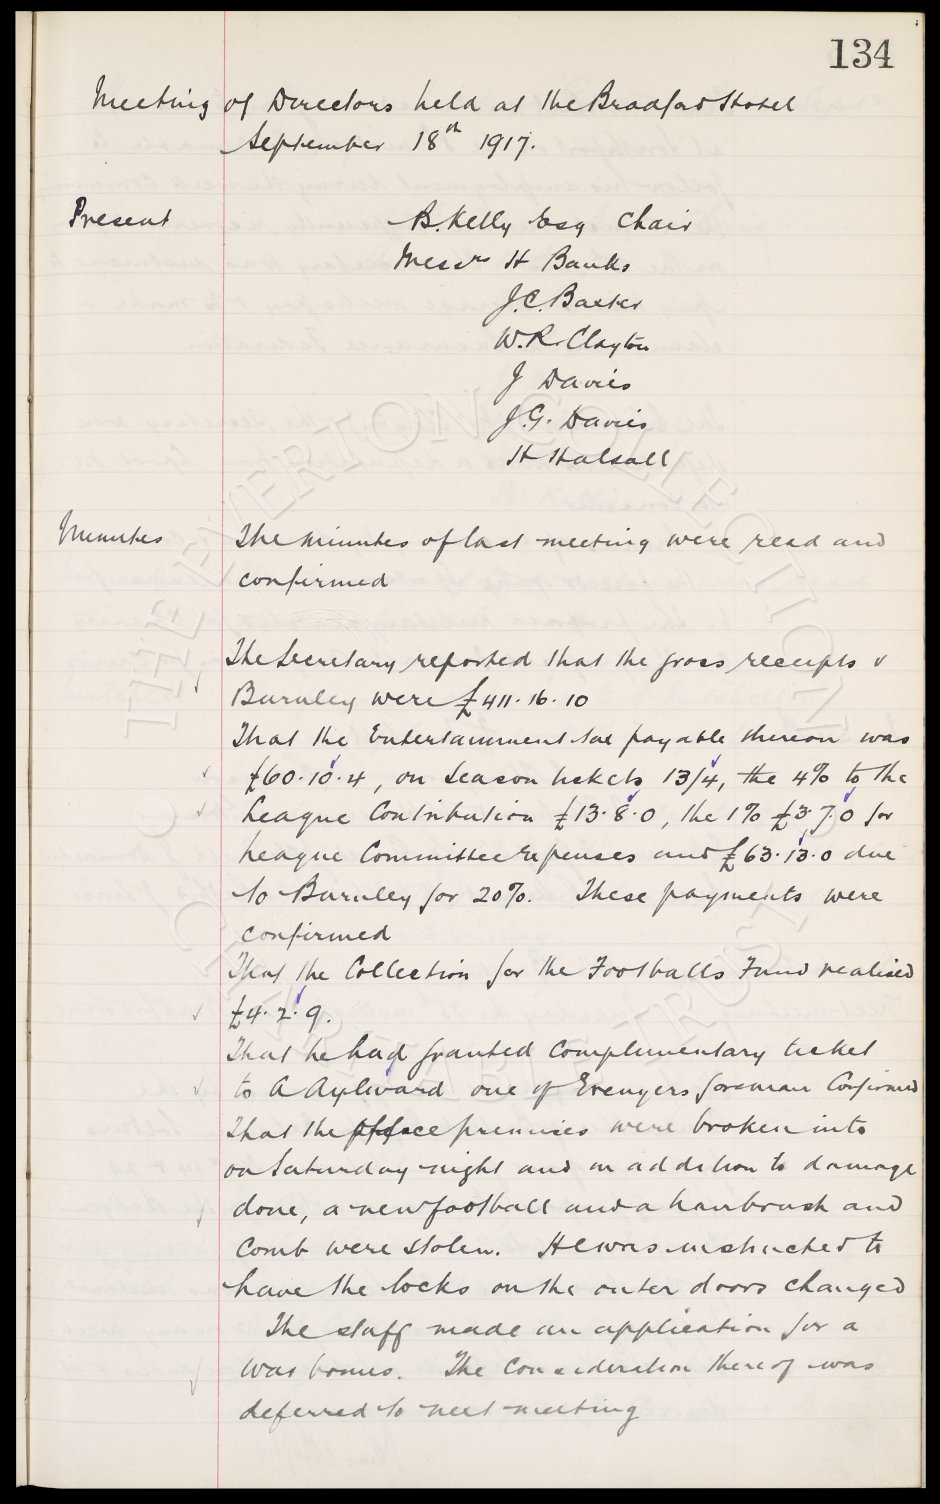 134
Meeting of Directors held at the Bradford Hotel
September 18th 1917.
Present B. Kelly Esq Chair
Messrs H Banks
J.C. Baxter
W.R. Clayton
J Davies
J.G. Davies
H Halsall
Minutes The minutes of last meeting were read and
confirmed
The Secretary reported that the gross receipts v
Burnley were £411.16.10
That the Entertainment tax payable thereon was
£60.10.4, on Season tickets 13/4, the 4% to the
League Contribution £13.8.0, the 1% £3.7.0 for
League Committee Expenses and £63.13.0 due
to Burnley for 20%. These payments were
confirmed
That the Collection for the Footballs Fund realised
£4.2.9.
That he had granted Complimentary ticket
to A Aylward one of foreman Confirmed
That the office premises were broken into
on Saturday night and in addition to damage
done, a new football and a hairbrush and
Comb were stolen. He was instructed to
have the locks on the outer doors changed
The staff made an application for a
War bonus. The Consideration thereof was
deferred to next meeting
THE EVERTON COLLECTION
CHARITABLE TRUST